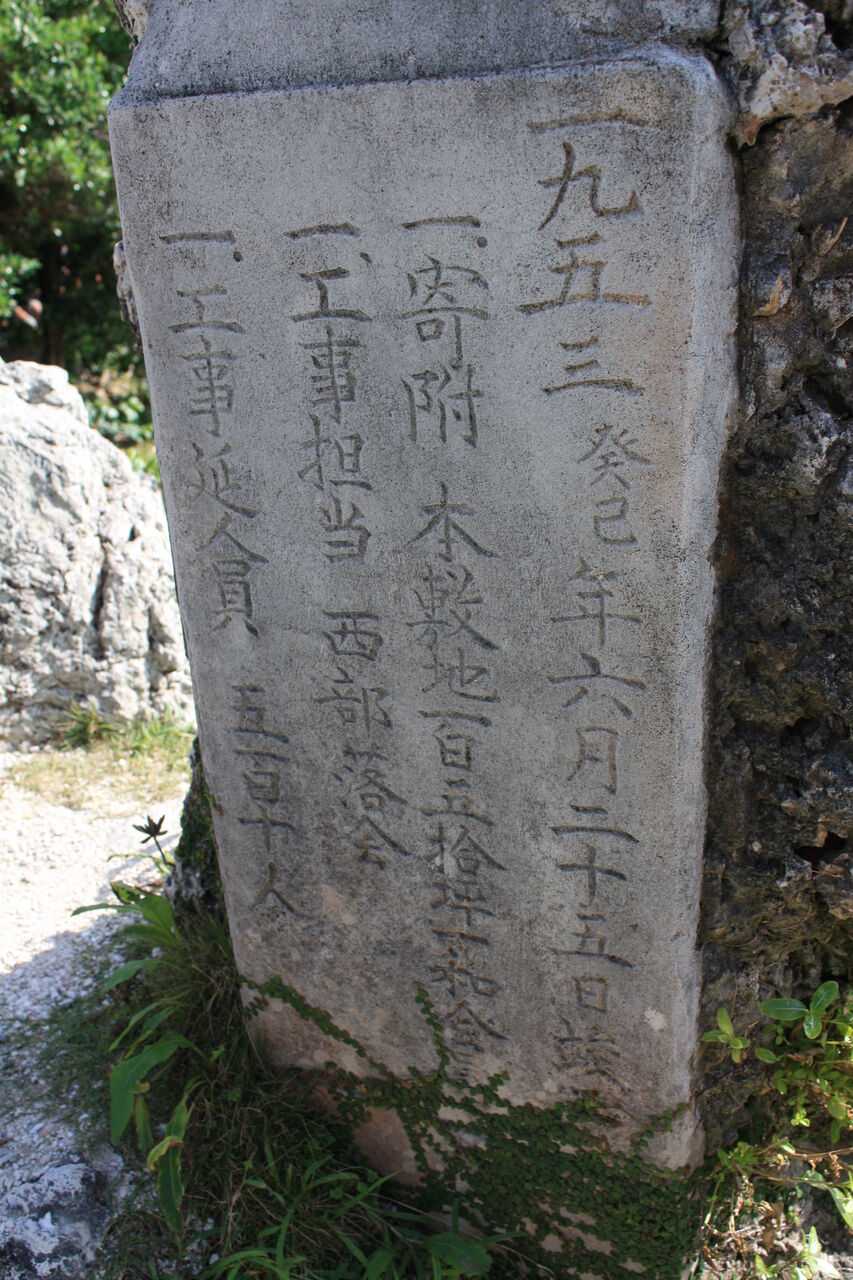 一九五三癸巳年六月二十五日竣
一、寄附 本敷地百五拾坪
一、工事担当 西部落会
一、工事延人員 五百十人